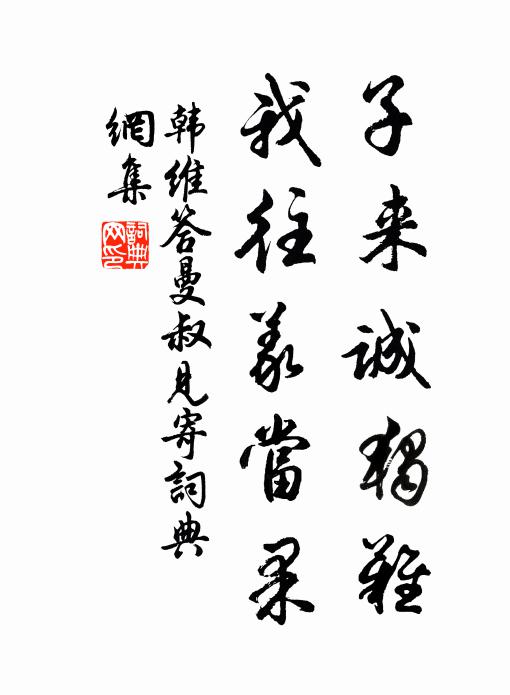 子来诚独难
我往义当果
韩维答曼叔见寄词典
網集
詞典网印